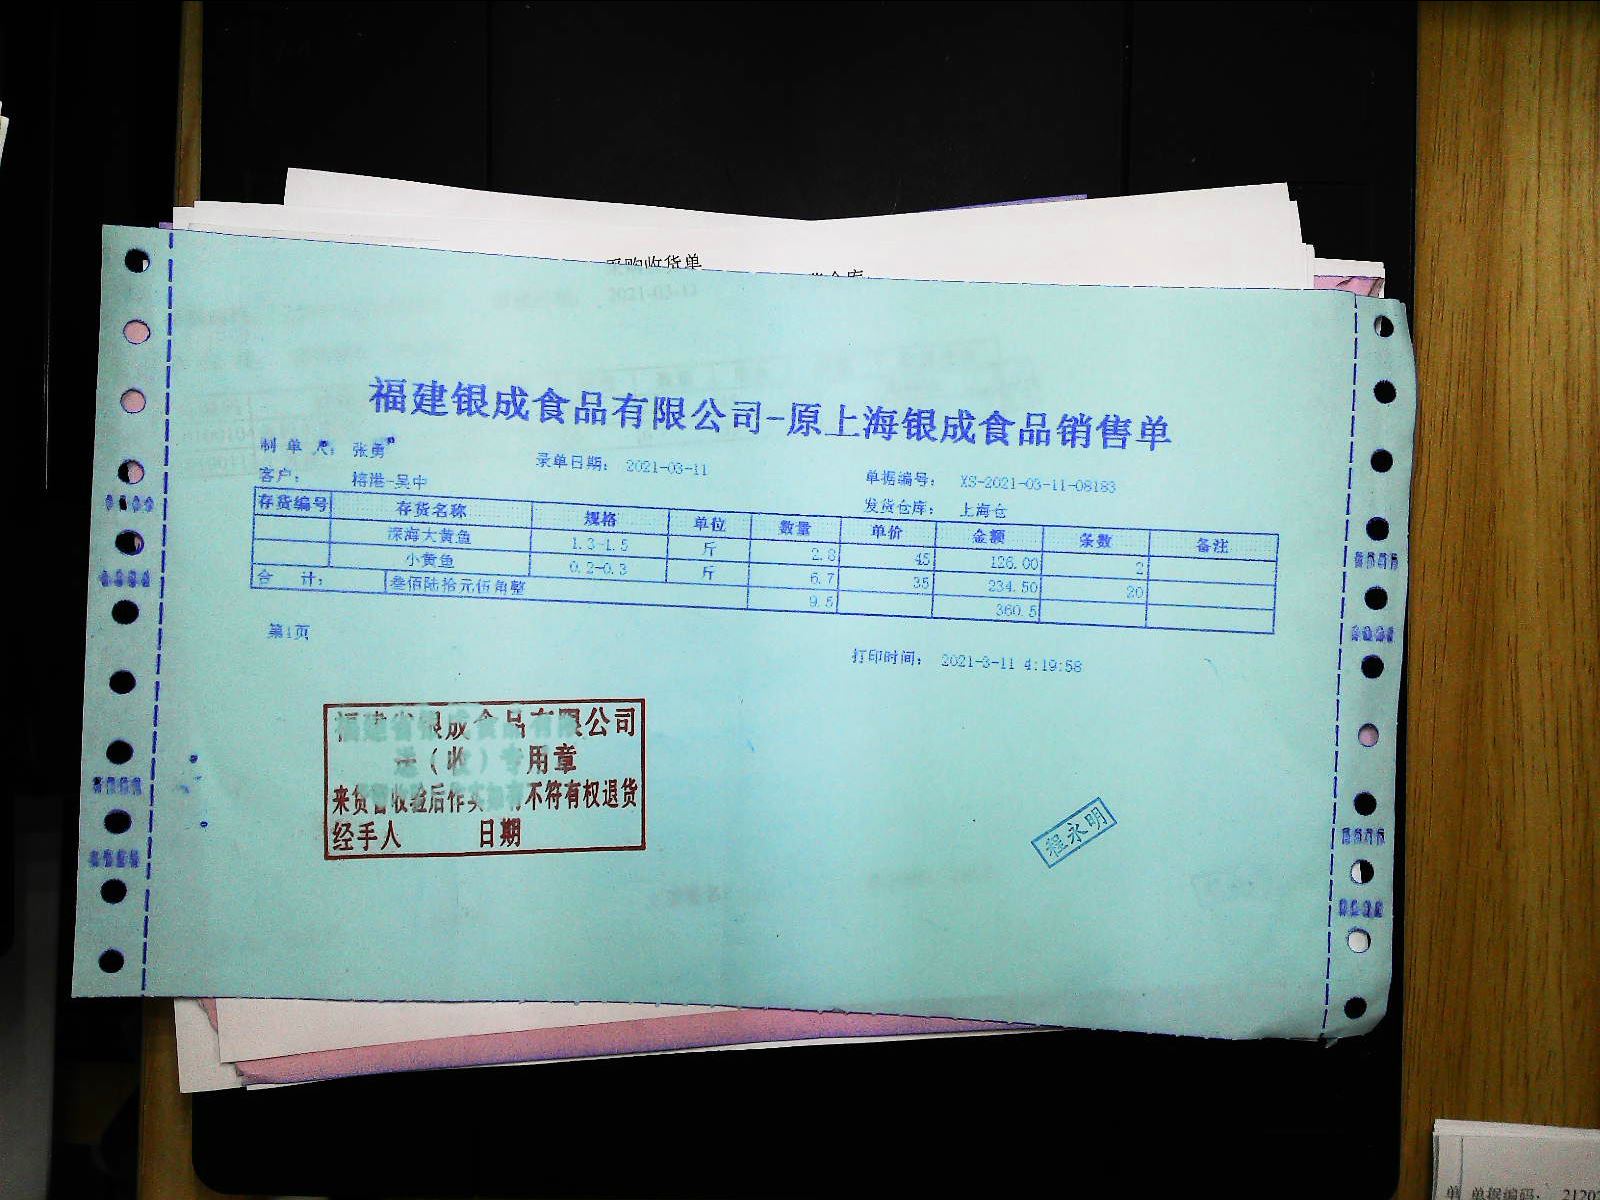 采购收货单
2021-03-12
福建银成食品有限公司-原上海银成食品销售单
制单人： 张勇 录单日期： 2021-03-11 单据编号： XS-2021-03-11-08183
客户： 榕港-吴中 发货仓库： 上海仓
存货编号 存货名称 规格 单位 数量 单价 金额 条数 备注
深海大黄鱼 1.3-1.5 斤 2.8 45 126.00 2
小黄鱼 0.2-0.3 斤 6.7 35 234.50 20
合 计： 叁佰陆拾元伍角整 9.5 360.5
第1页
打印时间： 2021-3-11 4:19:58
福建省银成食品有限公司
（收）专用章
不符有权退货
经手人 日期
程永明
单 单据编码： 2120